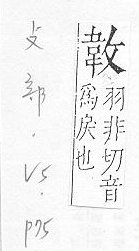 𢾁
羽非切音
為戾也
攴部.V5.P75